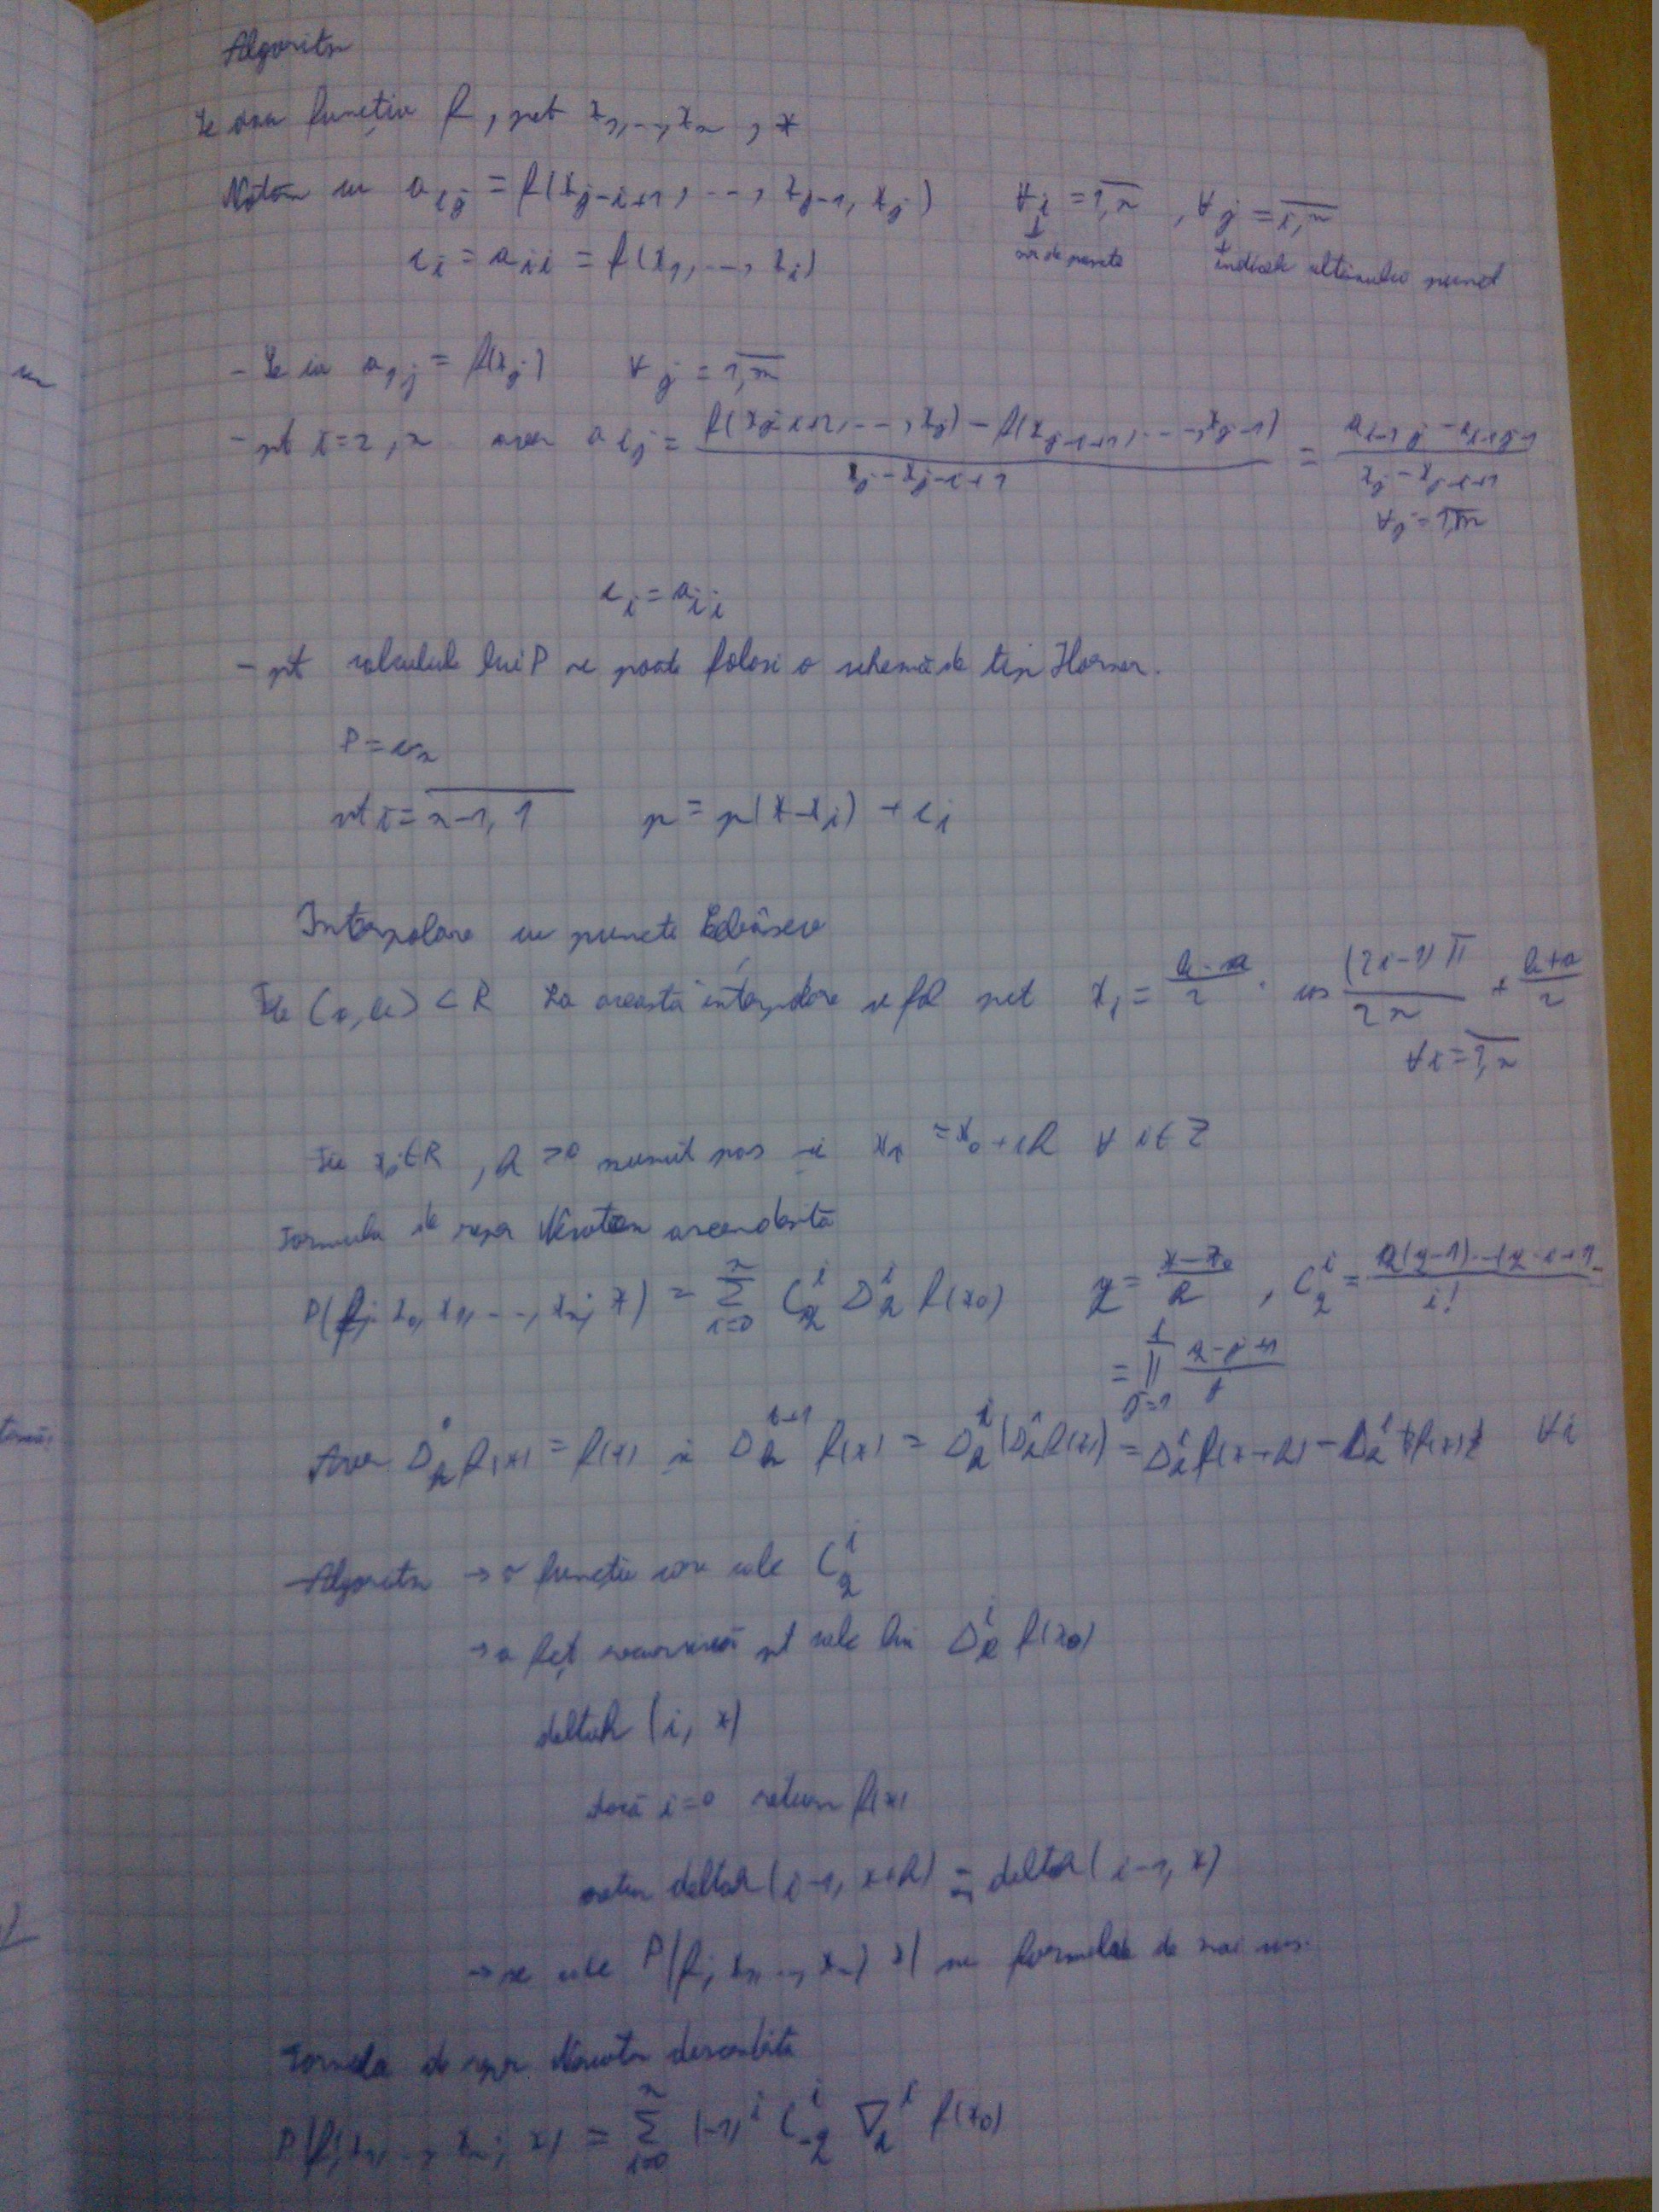 Algoritm
Se dau funcția f, pct x₁, ..., xₙ, x
Notăm cu a_{ij} = f(x_{j-i+1}, ..., x_{j-1}, x_j) ∀i = 1,n , ∀j = i,n
nr de puncte indicele ultimului punct
c_i = a_{ii} = f(x₁, ..., x_i)
- Se ia a_{1j} = f(x_j) ∀j = 1,n
- pt i = 2,n avem a_{ij} = (f(x_{j-i+2}, ..., x_j) - f(x_{j-i+1}, ..., x_{j-1})) / (x_j - x_{j-i+1}) = (a_{i-1 j} - a_{i-1 j-1}) / (x_j - x_{j-i+1})
∀j = i,n
c_i = a_{ii}
- pt calculul lui P se poate folosi o schemă de tip Horner.
P = cₙ
pt i = n-1, 1 p = p(x - x_i) + c_i
Interpolare cu puncte Cebâșev
Fie (a, b) ⊂ R La această interpolare se fol pct x_i = (b-a)/2 · cos (2i-1)π/2n + (b+a)/2
∀i = 1,n
Fie x₀ ∈ R, h > 0 numit pas și x_i = x₀ + ih ∀ i ∈ Z
Formula de repr Newton ascendentă
P(f; x₀, x₁, ..., xₙ; x) = Σ_{i=0}^{n} C_q^i Δ_h^i f(x₀) q = (x - x₀)/h , C_q^i = q(q-1)...(q-i+1)/i!
= ∏_{j=1}^{i} (q-j+1)/j
Avem Δ_h^0 f(x) = f(x) și Δ_h^{i+1} f(x) = Δ_h^i (Δ_h^1 f(x)) = Δ_h^i f(x+h) - Δ_h^i f(x) ∀i
Algoritm → o funcție care calc C_q^i
→ o fcț recursivă pt calc lui Δ_h^i f(x₀)
deltah (i, x)
dacă i = 0 return f(x)
return deltah(i-1, x+h) - deltah(i-1, x)
→ se calc P(f; x₁, ..., xₙ; x) cu formula de mai sus.
Formula de repr Newton descendentă
P(f; x₁, ..., xₙ; x) = Σ_{i=0}^{n} (-1)^i C_{-q}^i ∇_h^i f(x₀)